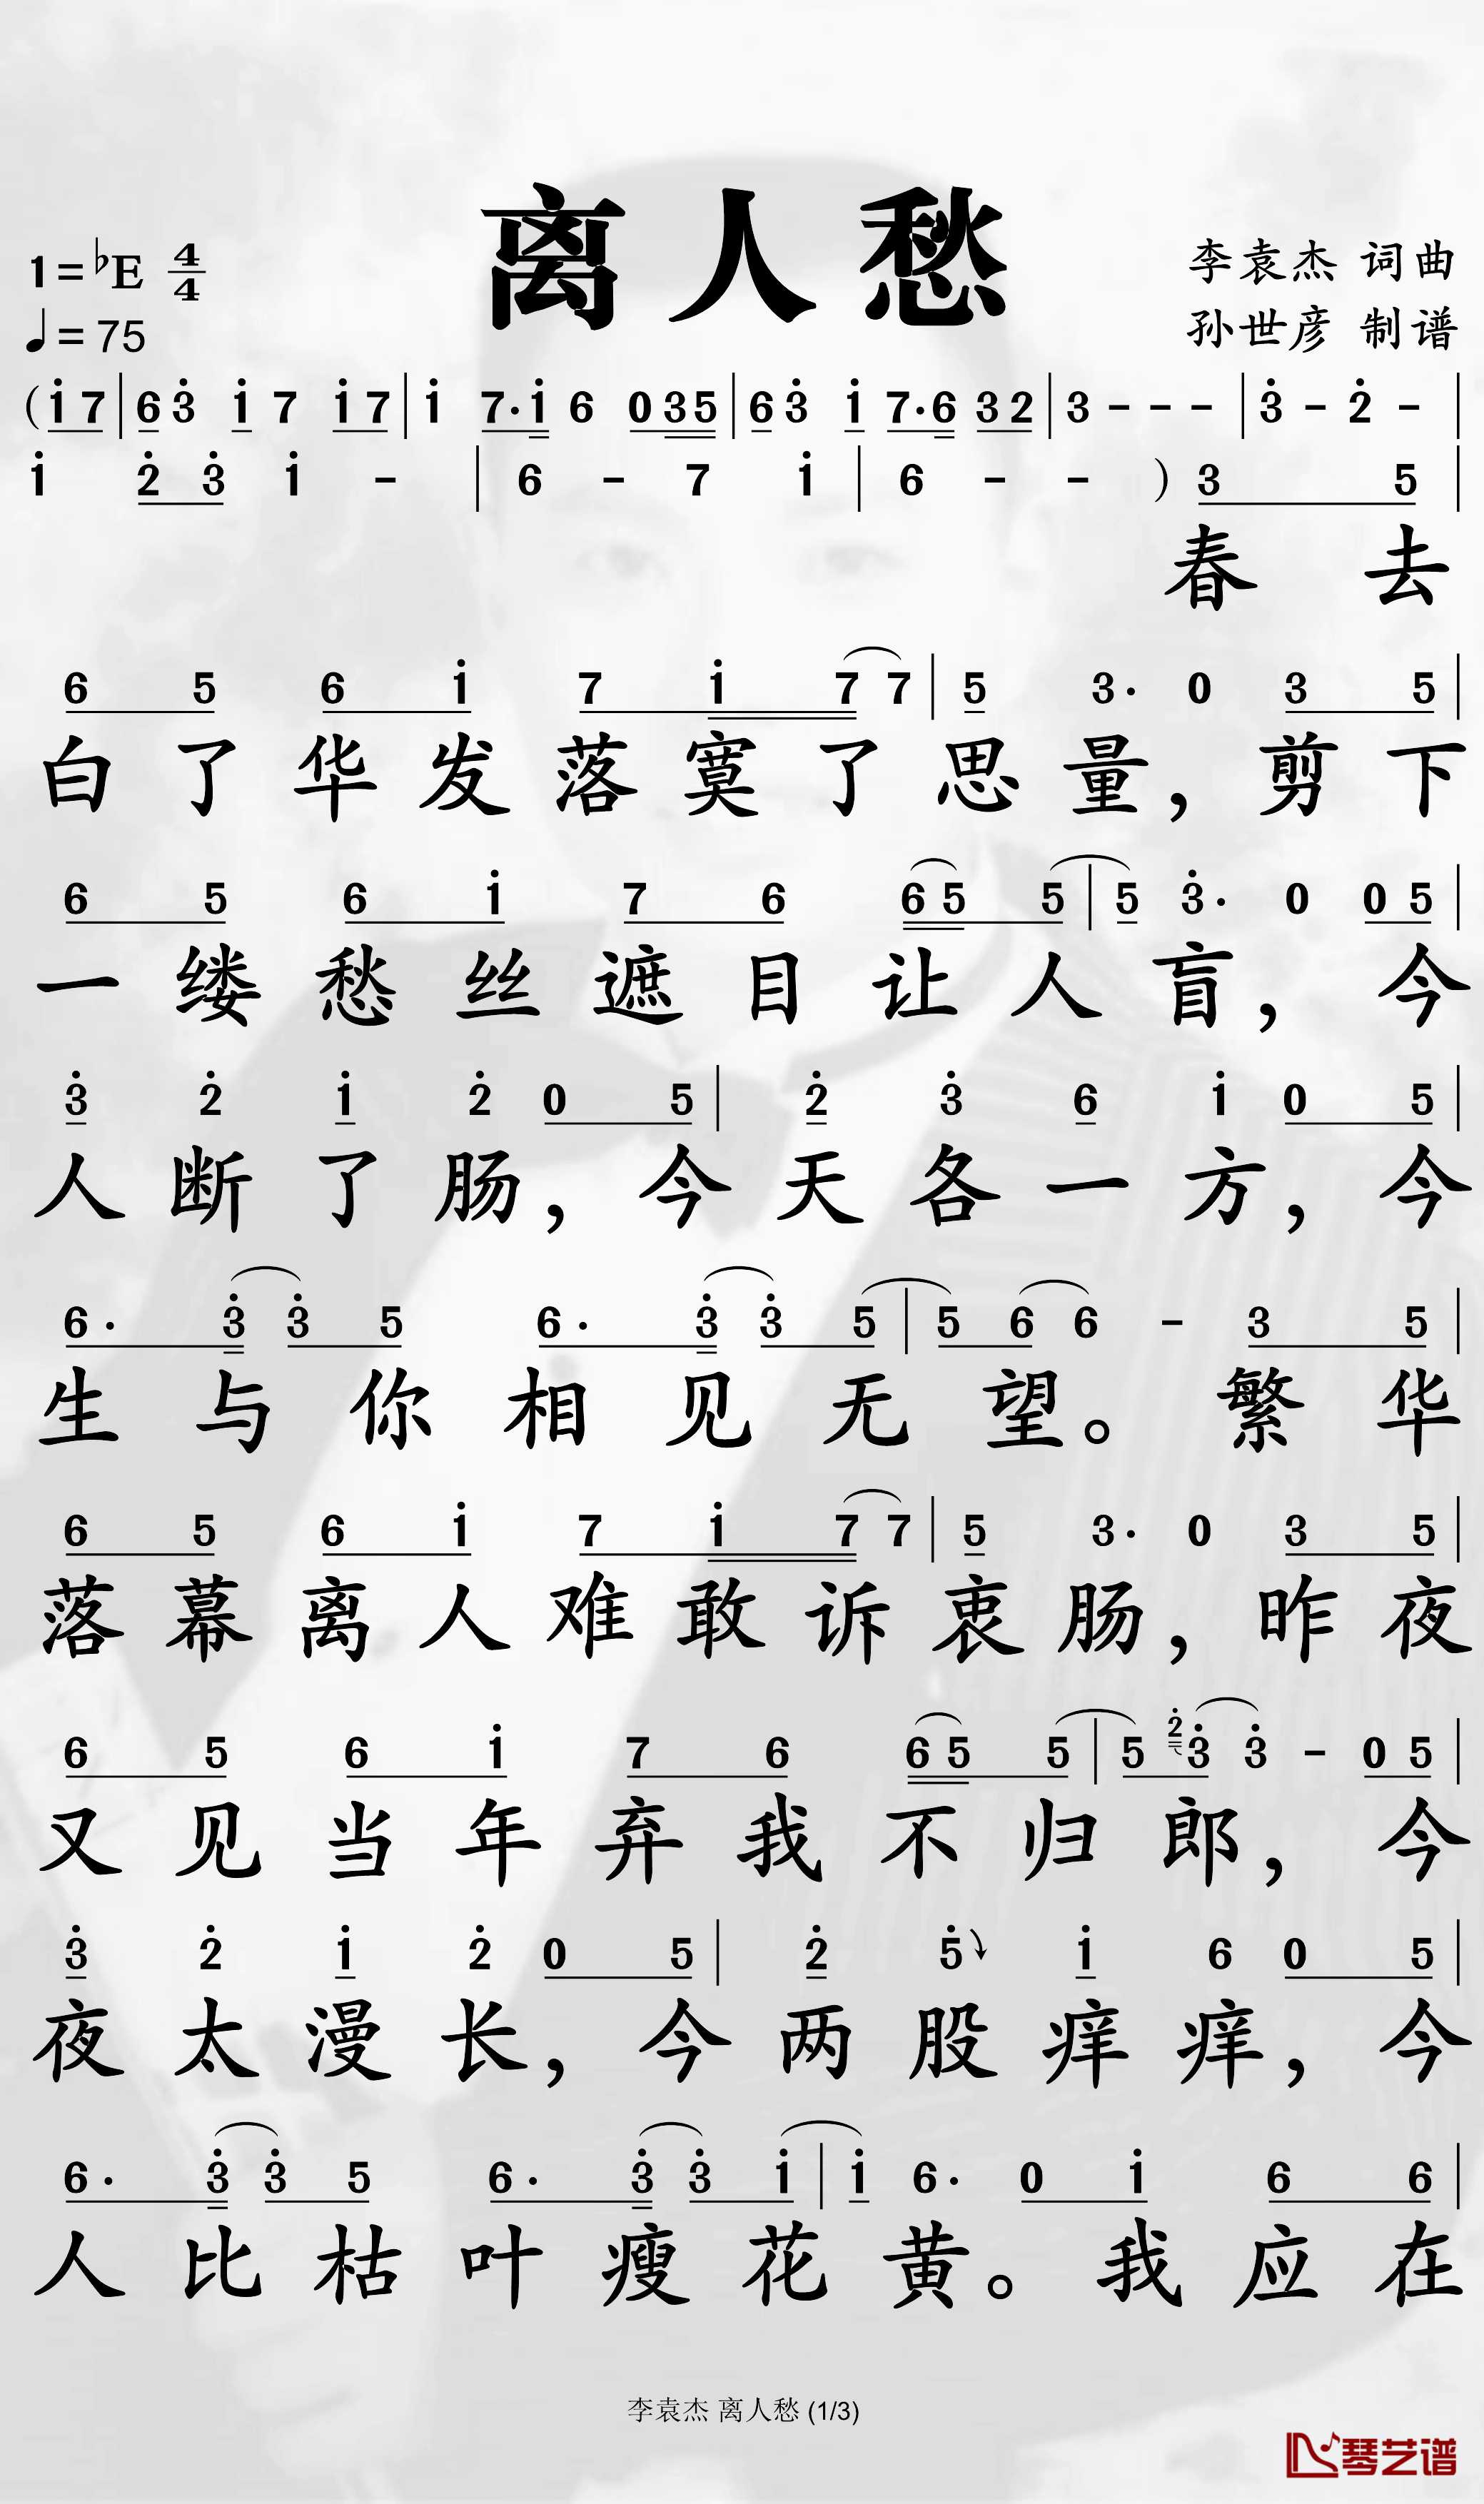 离人愁
1=♭E 4/4
李袁杰 词曲
♩=75
孙世彦 制谱
(i 7 | 6 3̇ i 7 i 7 | i 7· i 6 0 3 5 | 6 3̇ i 7· 6 3 2 | 3 - - - | 3̇ - 2̇ - |
i 2̇ 3̇ i - | 6 - 7 i | 6 - - ) 3 5 |
春去
6 5 6 i 7 i 7 7 | 5 3· 0 3 5 |
白了华发落寞了思量，剪下
6 5 6 i 7 6 6 5 5 | 5 3̇· 0 0 5 |
一缕愁丝遮目让人盲，今
3̇ 2̇ i 2̇ 0 5 | 2̇ 3̇ 6 i 0 5 |
人断了肠，今天各一方，今
6· 3̇ 3̇ 5 6· 3̇ 3̇ 5 | 5 6 6 - 3 5 |
生与你相见无望。繁华
6 5 6 i 7 i 7 7 | 5 3· 0 3 5 |
落幕离人难敢诉衷肠，昨夜
6 5 6 i 7 6 6 5 5 | 5 2̇ 3̇ 3̇ - 0 5 |
又见当年弃我不归郎，今
3̇ 2̇ i 2̇ 0 5 | 2̇ 5̇ i 6 0 5 |
夜太漫长，今两股痒痒，今
6· 3̇ 3̇ 5 6· 3̇ 3̇ i | i 6· 0 i 6 6 |
人比枯叶瘦花黄。我应在
李袁杰 离人愁 (1/3)
琴艺谱